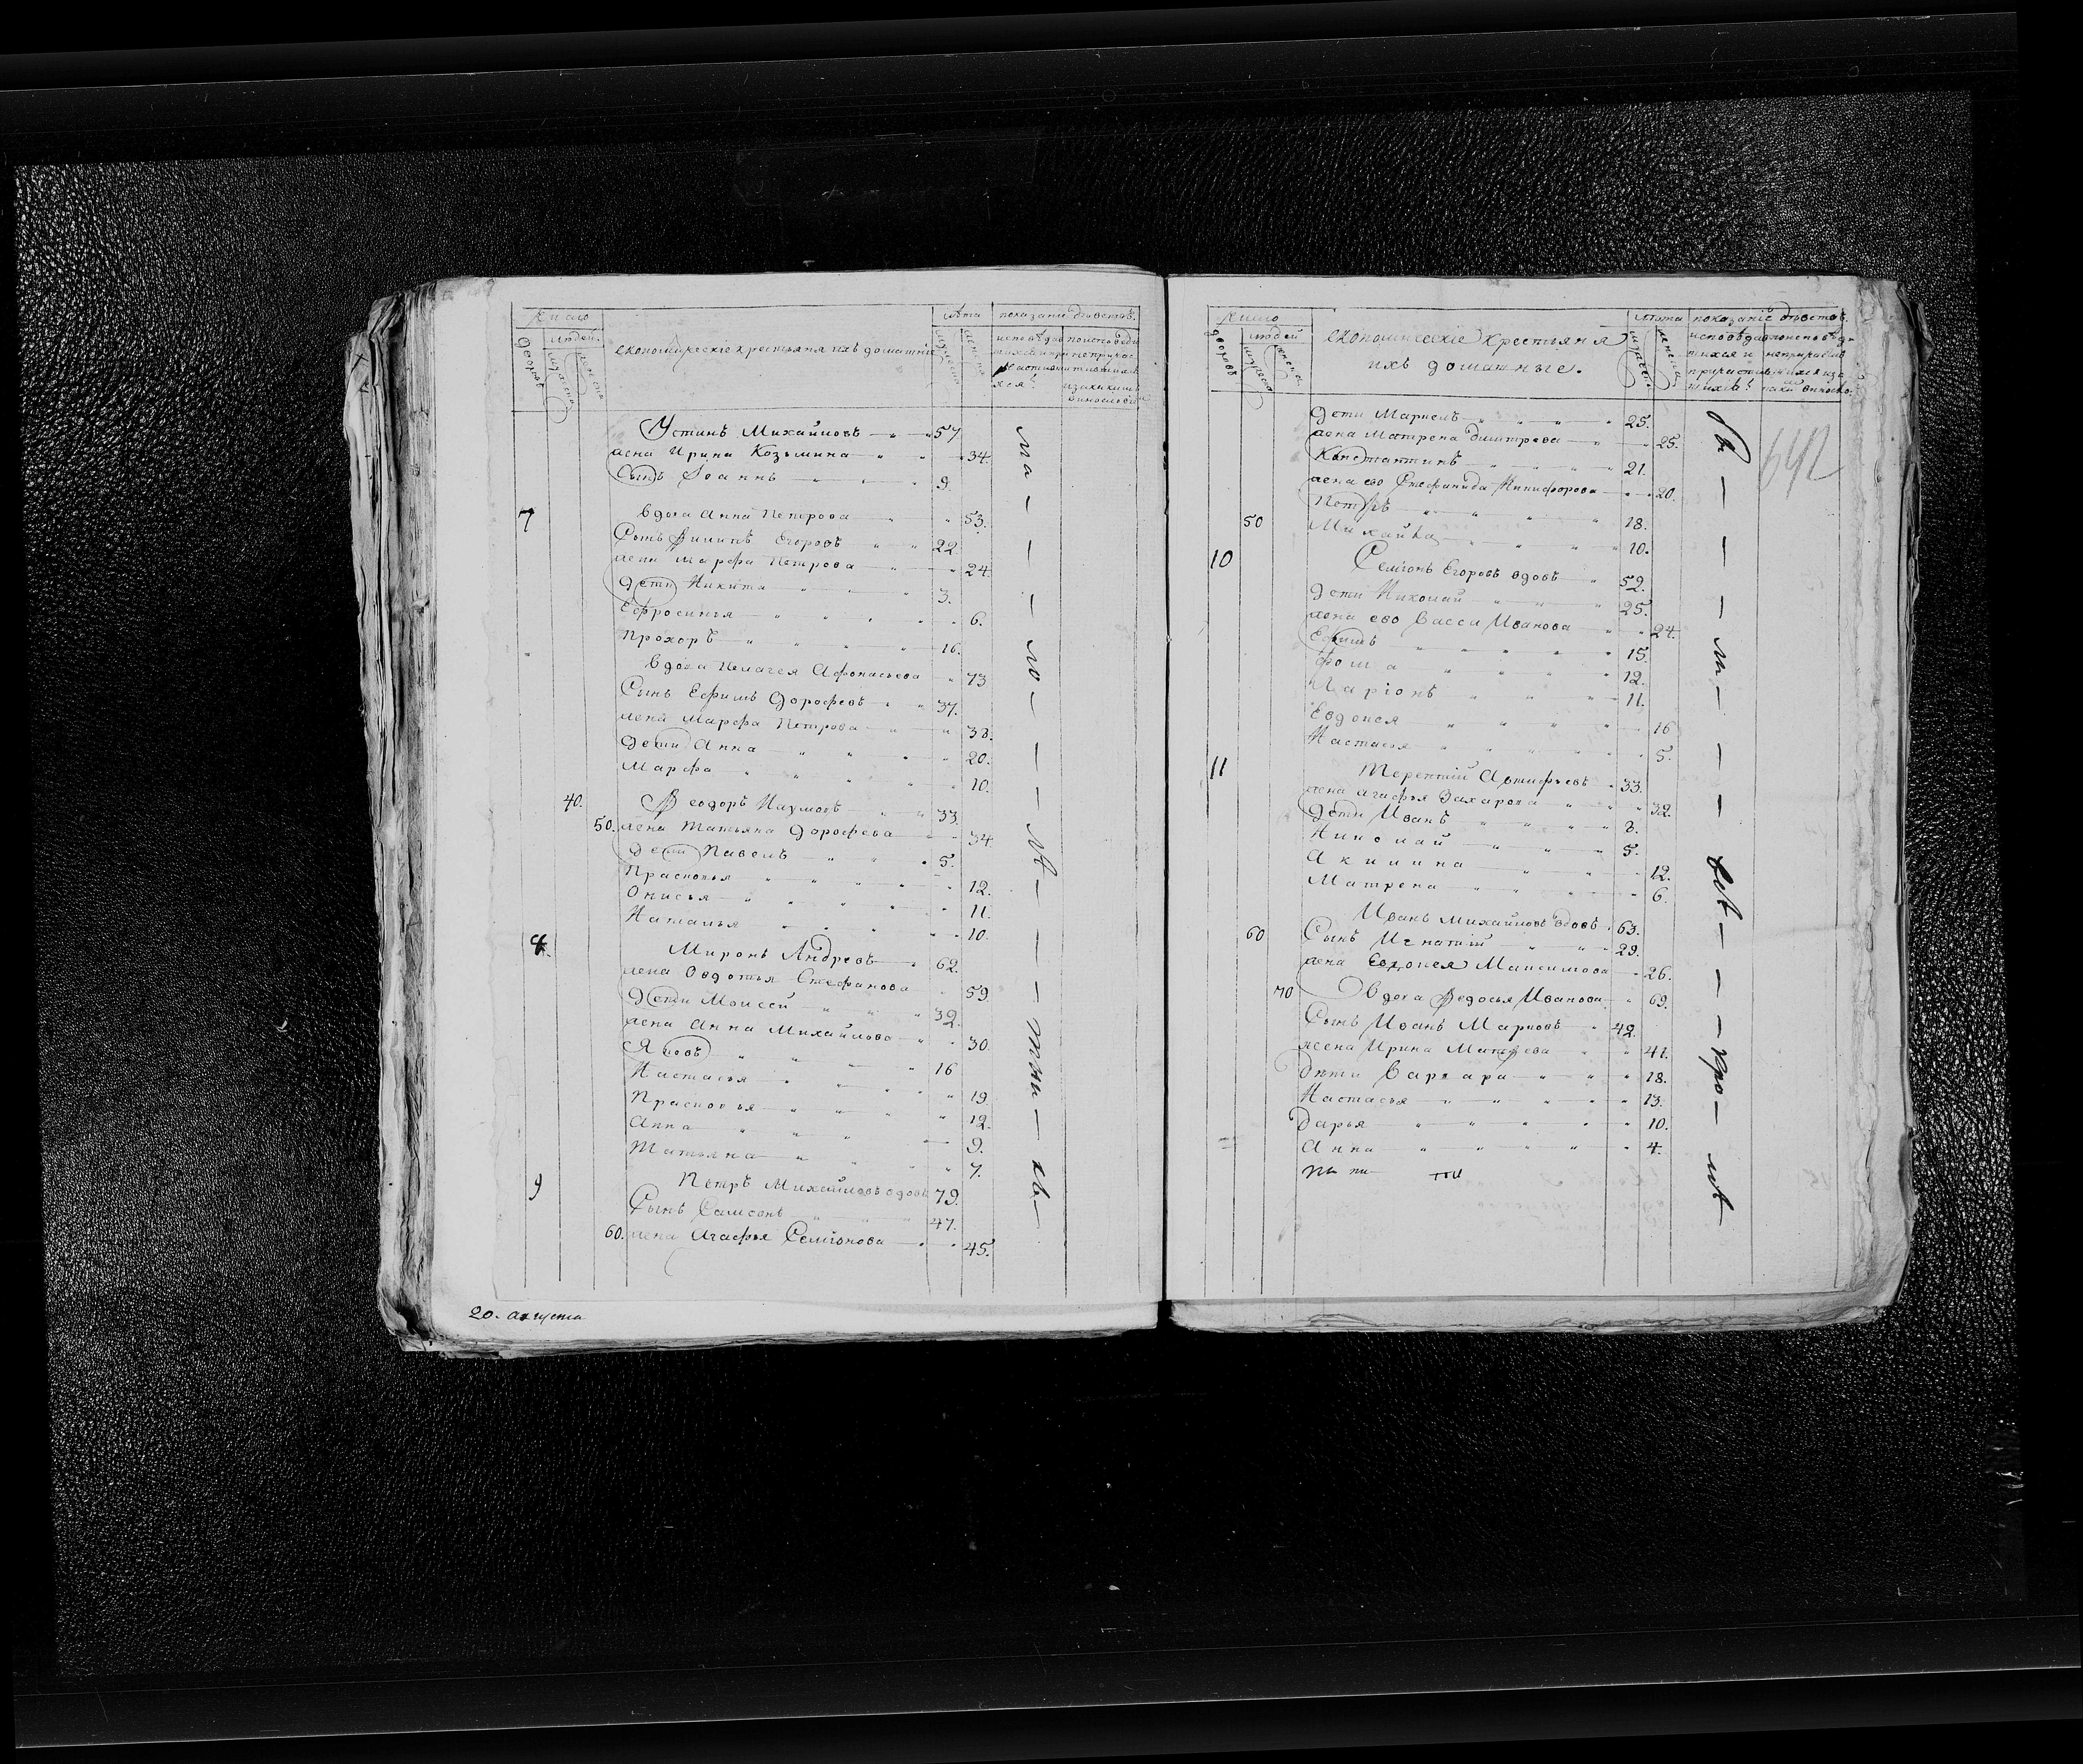 число
людей.
дворовъ
мужеска
женска
економическіе крестьяня ихъ домашніе
лѣта
мужеска
женска
показаніе дѣйствъ.
Устинъ Михайловъ 57
жена Ирина Козьмина 34.
Сынъ Іоаннъ 9.
7 вдова Анна Петрова 53.
Сынъ Филипъ Егоровъ 22.
жена Марфа Петрова 24
дети Никита 3.
Ефросинья 6.
Прохоръ 16.
вдова Пелагея Афонасьева 73
Сынъ Ефимъ Дорофеевъ 37.
жена Марфа Петрова 38.
дети Анна 20.
Марфа 10.
40. Ѳеодоръ Наумовъ 33.
50. жена Татьяна Дорофеева 34.
дети Павелъ 5.
Прасковья 12.
Онисья 11.
Наталья 10.
8. Миронъ Андреевъ 62.
жена Овдотья Стефанова 59
дети Моисей 32.
жена Анна Михайлова 30.
Яковъ 16
Настасья 19.
Прасковья 12.
Анна 9.
Татьяна 7.
9 Петръ Михайловъ вдовъ 79.
Сынъ Самсонъ 47.
60. жена Агафья Семіонова 45.
20. августа
число
людей
дворовъ
мужеска
женска
економическіе крестьяня
ихъ домашные.
лѣта
мужеска
женска
показаніе дѣйствъ.
642
дети Маркелъ 25.
жена Матрена Дмитрева 25.
Константинъ 21.
жена ево Стефанида Никифорова 20.
Петръ 18.
50 Михайла 10.
10 Семіонъ Егоровъ вдовъ 52.
дети Николай 25.
жена ево Васса Иванова 24.
Ефимъ 15.
фома 12.
Ларіонъ 11.
Евдокея 16
Настасья 5.
11 Терентій Антифьевъ 33.
жена Агафья Захарова 32.
дети Иванъ 8.
Николай 5.
Акилина 12.
Матрена 6.
Иванъ Михайловъ вдовъ 63.
60 Сынъ Игнатій 29.
жена Евдокея Максимова 26.
70 Вдова Ѳедосья Иванова 69.
Сынъ Иванъ Марковъ 42.
жена Ирина Матфеева 41.
дѣти Варвара 18.
Настасья 13.
Дарья 10.
Анна 4.